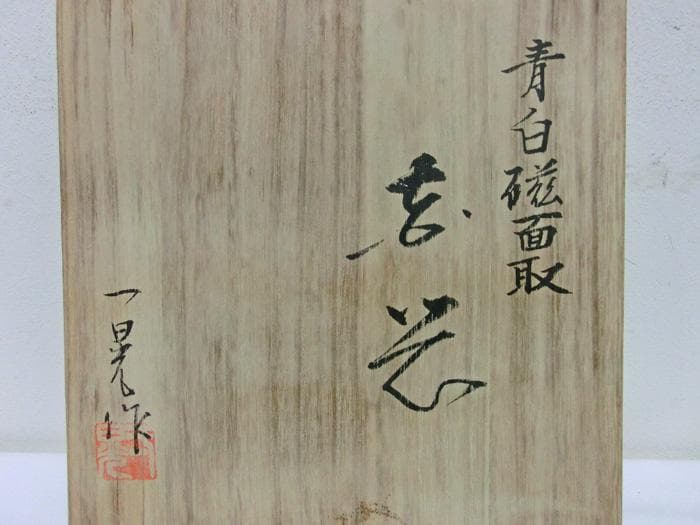 青白磁面取
花器
一晃作